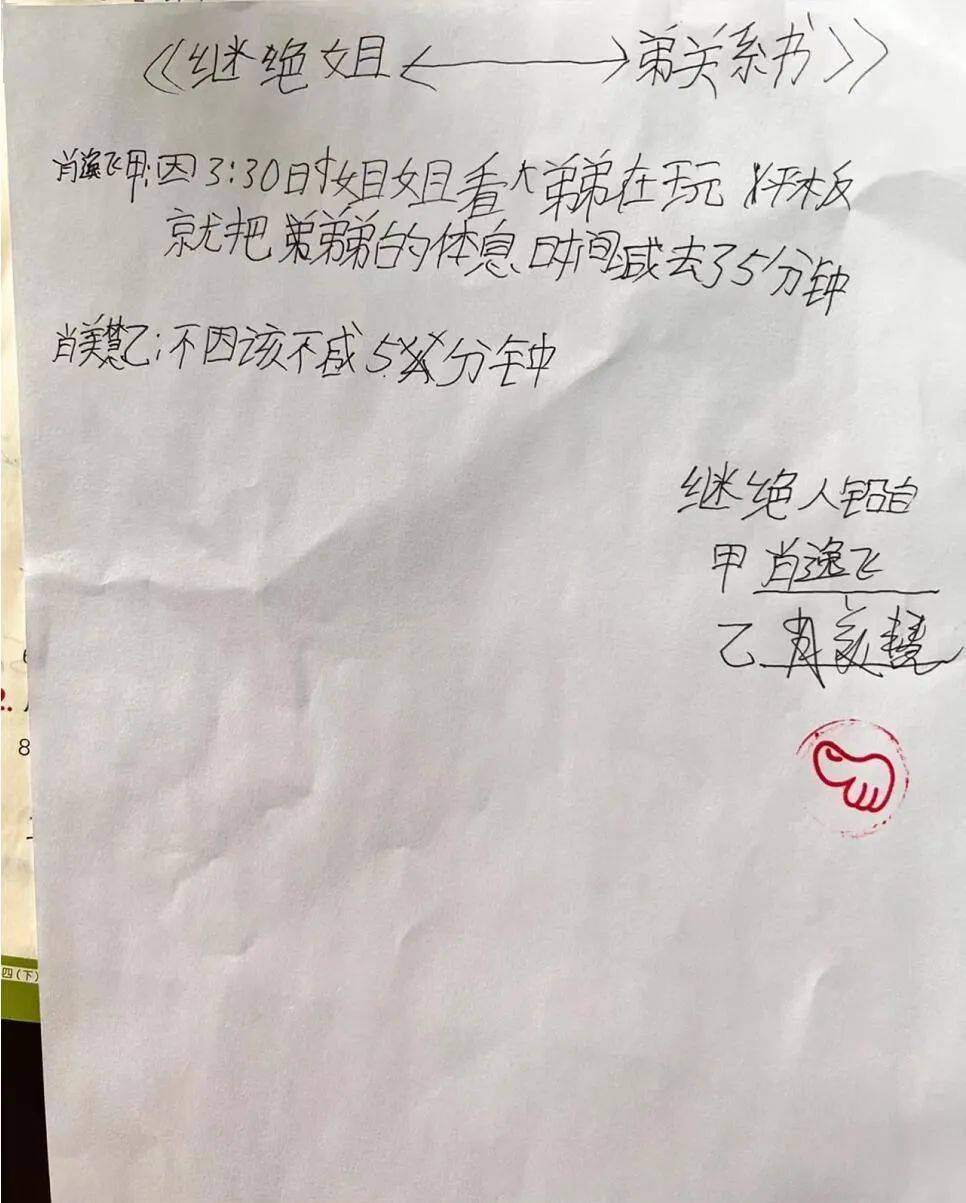 《继绝姐←→弟关系书》
肖逸飞甲:因3:30时姐姐看大弟弟在玩平板
就把弟弟的体息时间减去了5分钟
肖美慧乙:不因该不咸5分钟
继绝人铅白
甲 肖逸飞
乙 肖美慧
8
四(下)